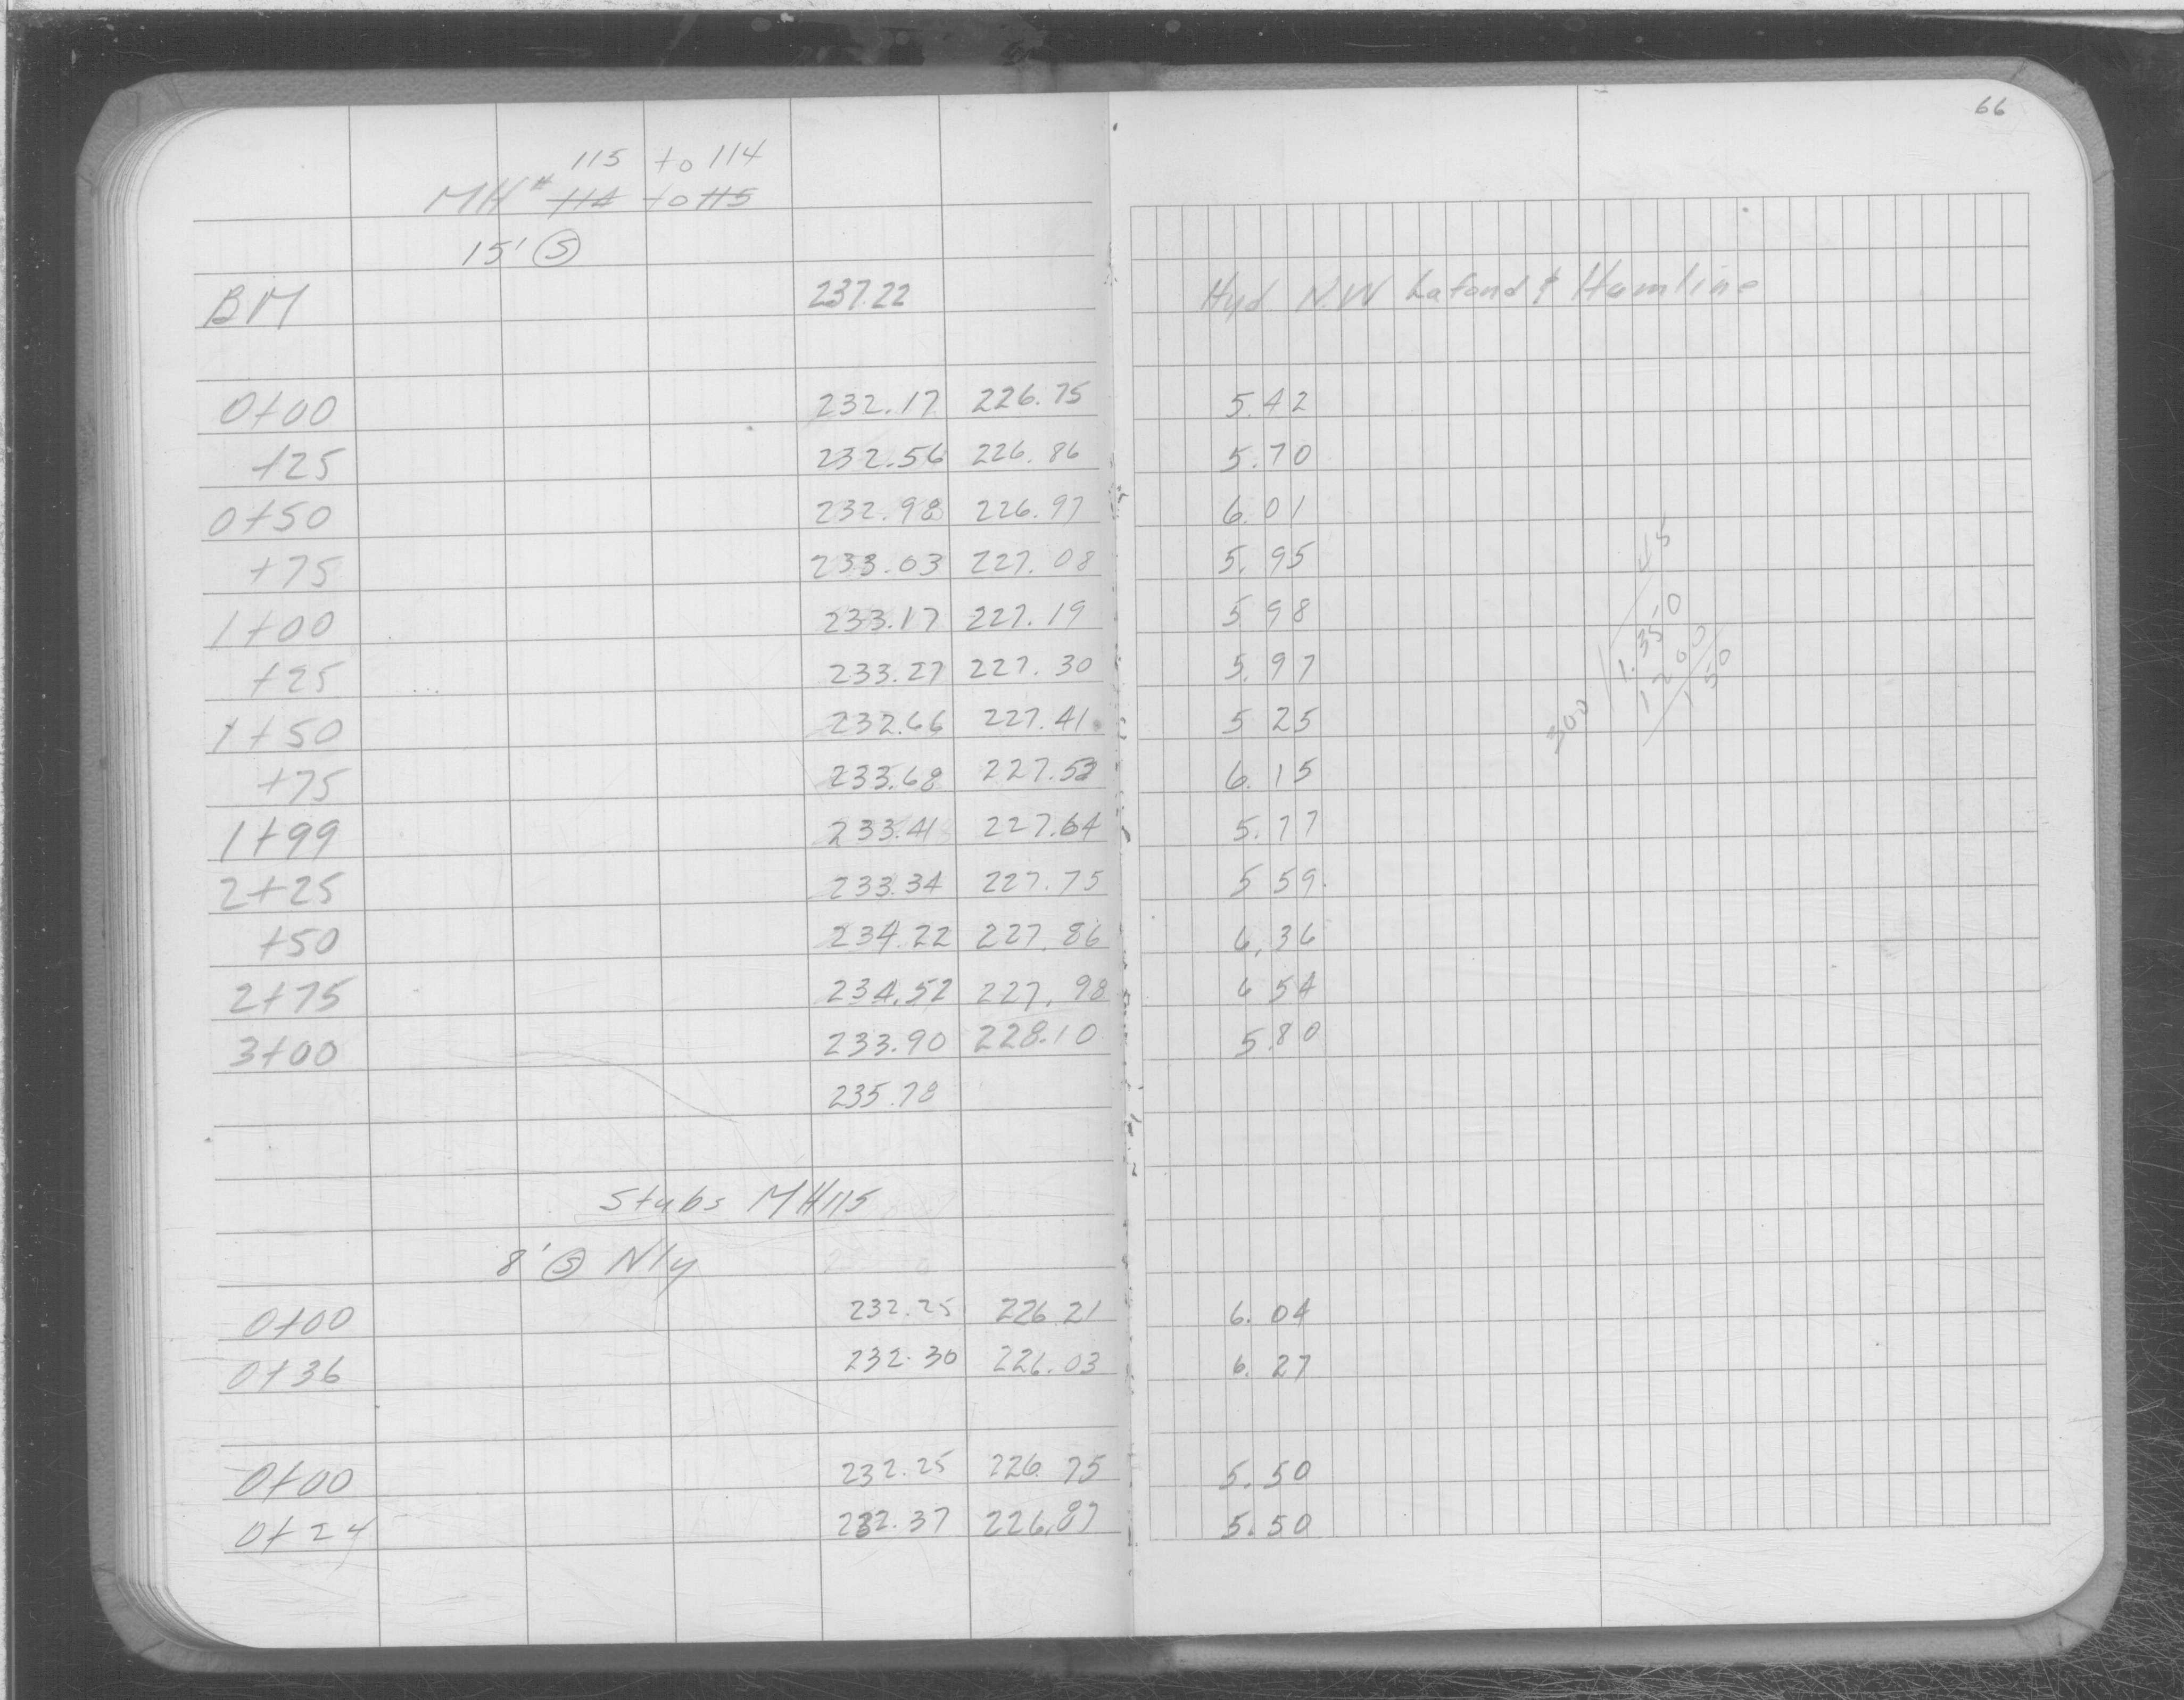 66
115 to 114
MH# 114 to 115
15' S
BM 237.22 Hyd. N.W Lafond & Hamline
0+00 232.17 226.75 5.42
+25 232.56 226.86 5.70
0+50 232.98 226.97 6.01
+75 233.03 227.08 5.95
1+00 233.17 227.19 5 98
+25 233.27 227.30 5.97
1+50 232.66 227.41 5 25
+75 233.68 227.53 6.15
1+99 233.41 227.64 5.77
2+25 233.34 227.75 5 59
+50 234.22 227.86 6.36
2+75 234.52 227.98 6 54
3+00 233.90 228.10 5.80
235.78
Stubs MH115
8' S Nly
0+00 232.25 226.21 6.04
0+36 232.30 226.03 6.27
0+00 232.25 226.75 5.50
0+24 232.37 226.87 5.50
300 1.350
1200
150